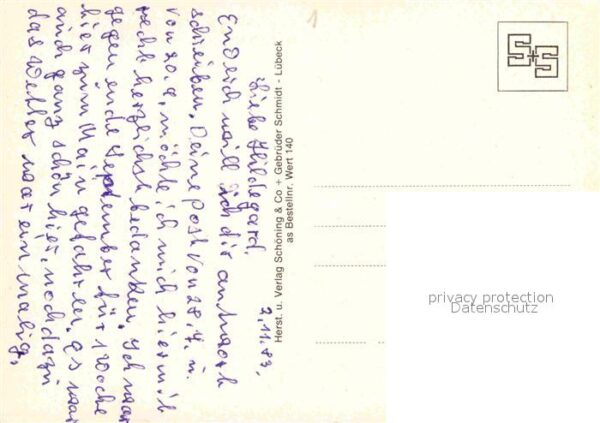 2.11.83.
Liebe Hildegard,
Endlich will ich dir antwort
schreiben. Deine Post von 28.7. u.
von 20.9. möchte ich mich hiermit
recht herzlichst bedanken. Ich war
gegen ende September für 1 Woche
hier zum Main gefahren. Es war
auch ganz schön hier, noch dazu
das Wetter war einmalig.
Herst. u. Verlag Schöning & Co + Gebrüder Schmidt - Lübeck
as Bestellnr. Wert 140
1
S+S
privacy protection
Datenschutz